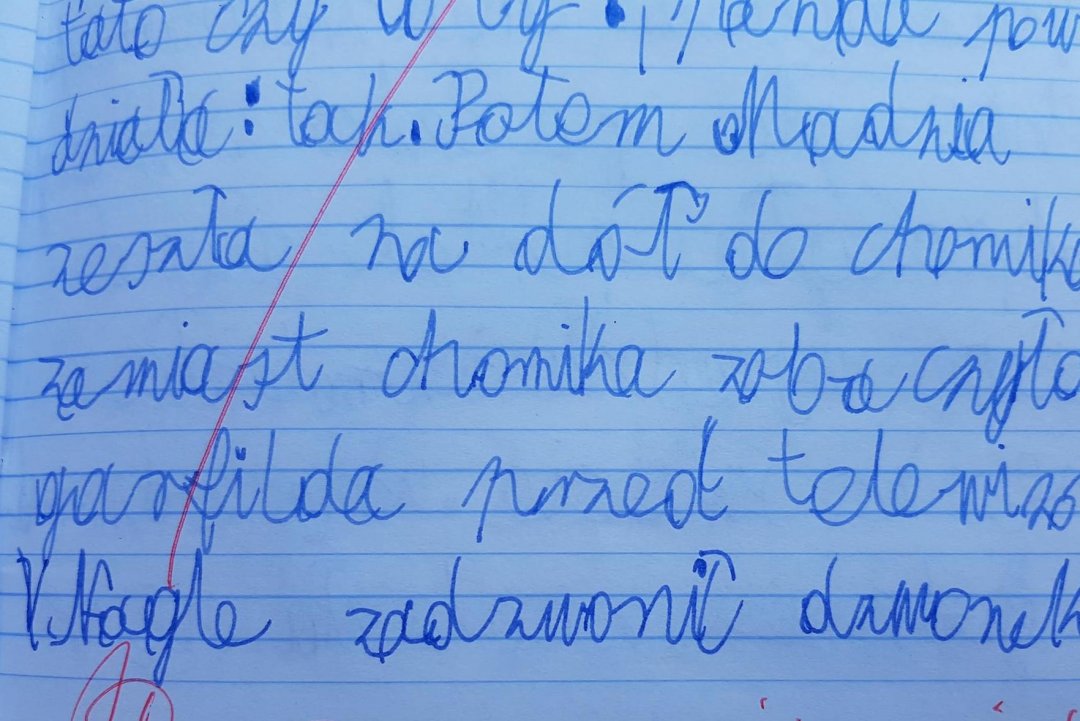 tato czy
działa: tak. Potem Madzia
zeszła na dół do chomik
zamiast chomika zobaczyła
garfilda przed telewizo
V. Nagle zadzwonił dzwonek